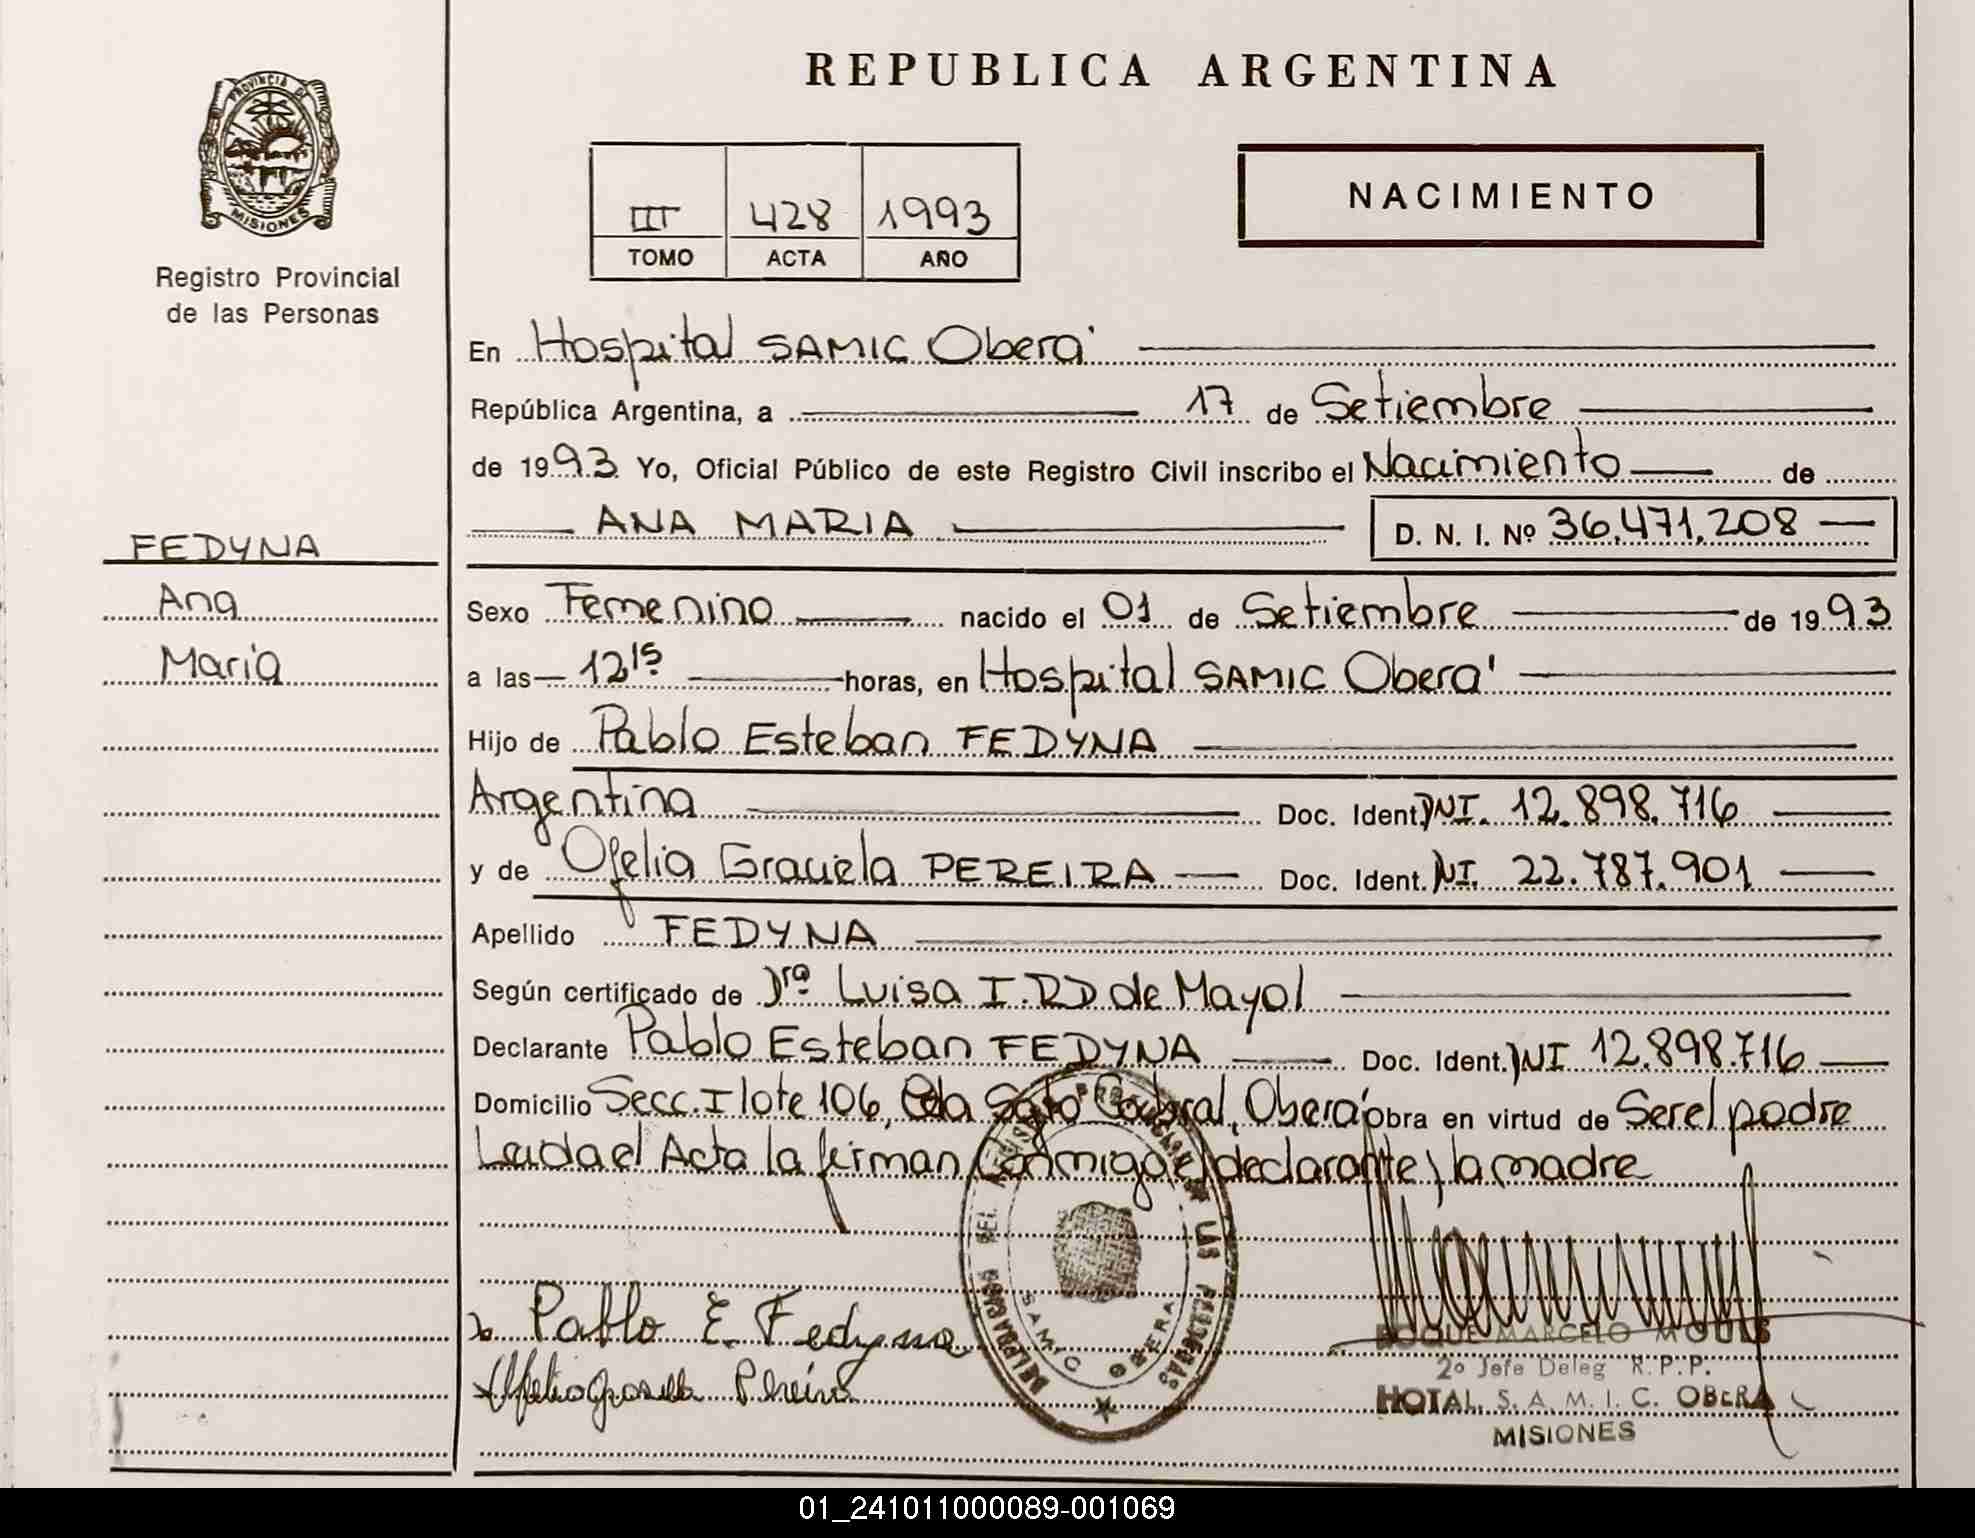 REPUBLICA ARGENTINA
PROVINCIA DE
MISIONES
Registro Provincial
de las Personas
III 428 1993
TOMO ACTA AÑO
NACIMIENTO
En Hospital SAMIC Oberá
República Argentina, a 17 de Setiembre
de 1993 Yo, Oficial Público de este Registro Civil inscribo el Nacimiento de
ANA MARIA D. N. I. Nº 36.471.208
FEDYNA
Ana
Maria
Sexo Femenino nacido el 01 de Setiembre de 1993
a las 12 15 horas, en Hospital SAMIC Oberá
Hijo de Pablo Esteban FEDYNA
Argentina Doc. Ident. DNI. 12.898.716
y de Ofelia Graciela PEREIRA Doc. Ident. DNI. 22.787.901
Apellido FEDYNA
Según certificado de Dra Luisa I. RD de Mayol
Declarante Pablo Esteban FEDYNA Doc. Ident. DNI 12.898.716
Domicilio Secc. I lote 106, Sgto Cabral, Oberá obra en virtud de Ser el padre
Leida el Acta la firman conmigo el declarante y la madre
Pablo E. Fedyna
Ofelia Graciela Pereira
SAMIC OBERA
ROQUE MARCELO
2º Jefe Deleg R.P.P.
HOTAL. S. A. M. I. C. OBERA
MISIONES
01_241011000089-001069